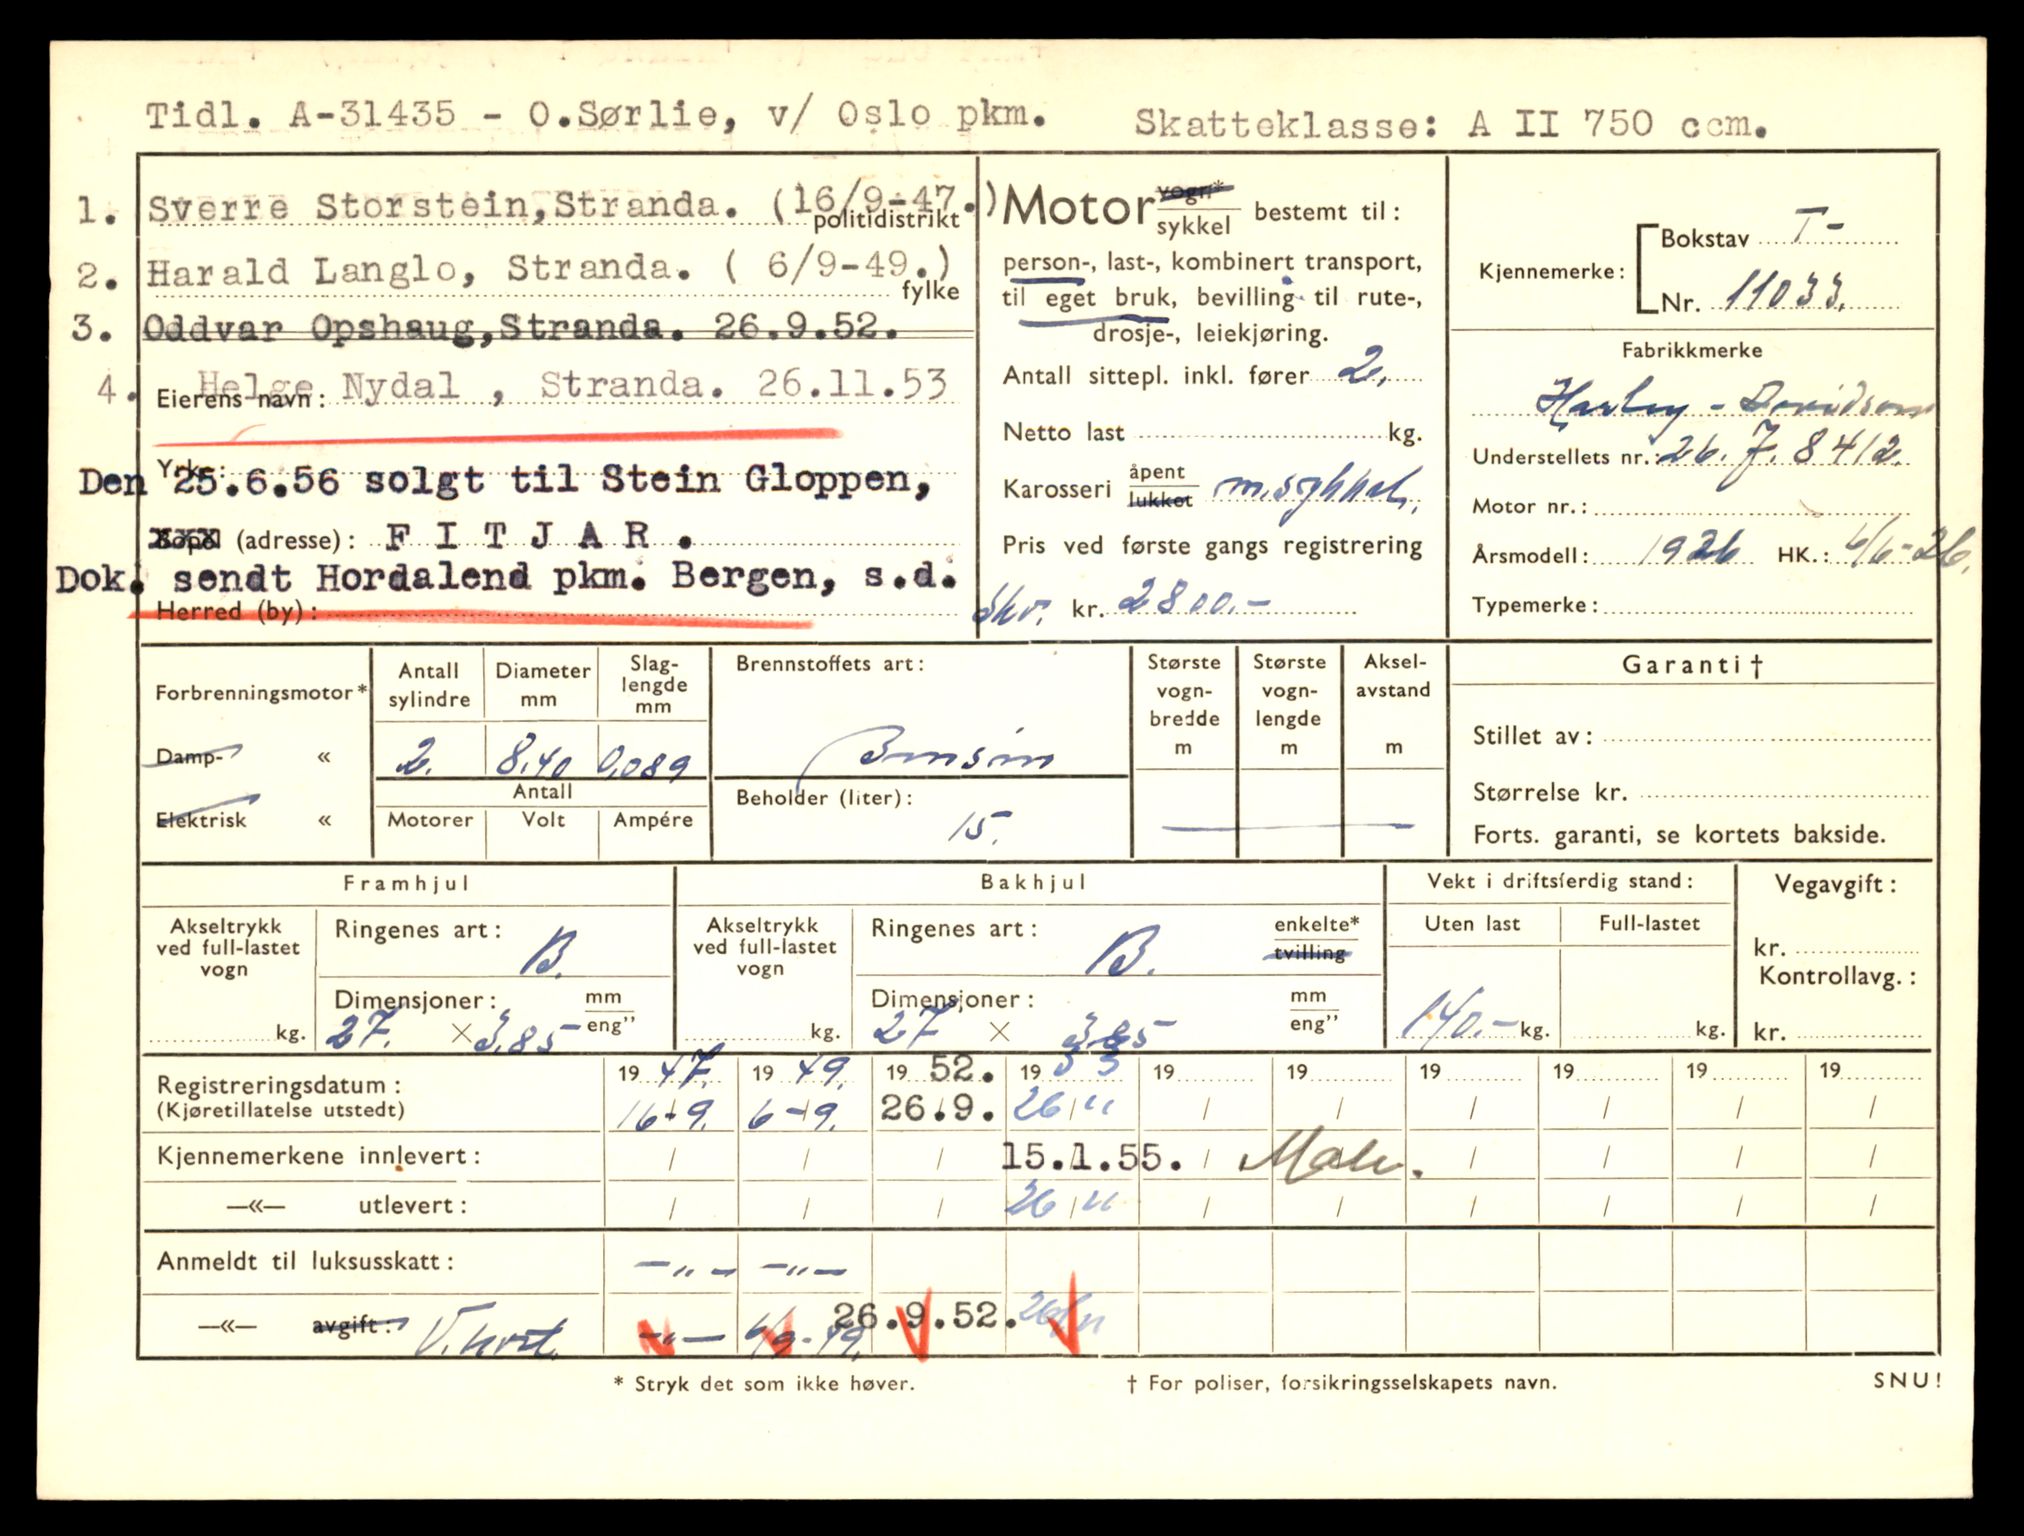 Tidl. A-31435 - O.Sørlie, v/ Oslo pkm. Skatteklasse: A II 750 ccm.
1. Sverre Storstein, Stranda. (16/9-47.)
politidistrikt
2. Harald Langlo, Stranda. ( 6/9-49.)
fylke
3. Oddvar Opshaug, Stranda. 26.9.52.
4. Helge Nydal , Stranda. 26.11.53
Eierens navn:
Yrke:
Den 25.6.56 solgt til Stein Gloppen,
Bopel (adresse): F I T J A R .
Dok. sendt Hordalend pkm. Bergen, s.d.
Herred (by):
Motor vogn*
sykkel bestemt til:
person-, last-, kombinert transport,
til eget bruk, bevilling til rute-,
drosje-, leiekjøring.
Antall sittepl. inkl. fører 2.
Netto last kg.
Karosseri åpent
lukket
Pris ved første gangs registrering
Skv. kr. 2800.-
Kjennemerke: Bokstav T-
Nr. 11033.
Fabrikkmerke
Harley-Davidson
Understellets nr.: 26.J.8412.
Motor nr.:
Årsmodell: 1926 HK.: 6/6-26.
Typemerke:
Forbrenningsmotor*
Damp- «
Elektrisk «
Antall sylindre
Diameter mm
Slag-
lengde
mm
2. 8.40 0.089
Antall
Motorer Volt Ampére
Brennstoffets art:
Bensin
Beholder (liter):
15.
Største
vogn-
bredde
m
Største
vogn-
lengde
m
Aksel-
avstand
m
Garanti †
Stillet av:
Størrelse kr.
Forts. garanti, se kortets bakside.
Framhjul
Akseltrykk
ved full-lastet
vogn
kg.
Ringenes art: B.
Dimensjoner: mm
27. × 3.85 eng”
Bakhjul
Akseltrykk
ved full-lastet
vogn
kg.
Ringenes art: B. enkelte*
tvilling
Dimensjoner: mm
27 × 3.85 eng”
Vekt i driftsferdig stand:
Uten last Full-lastet
140.- kg. kg.
Vegavgift:
kr.
Kontrollavg.:
kr.
Registreringsdatum: 19 47. 19 49. 19 52. 19 53 19 19 19 19 19 19
(Kjøretillatelse utstedt) 16-9. 6-9. 26.9. 26/11 / / / / / /
Kjennemerkene innlevert: / / / 15.1.55. / / / / /
—«— utlevert: / / / 26/11 / / / / / /
Anmeldt til luksusskatt: -"- -"-
—«— avgift: -"- 6/9-49. 26.9.52. 26/11
* Stryk det som ikke høver.
† For poliser, forsikringsselskapets navn.
SNU!